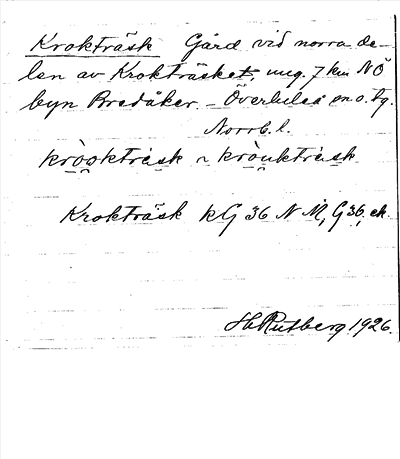 Krokträsk Gård vid norra de-
len av Krokträsket, ung. 7 km NÖ
byn Bredåker. – Överluleå sn o. tg.
Norrb. l.
kròo̯ktràsk ~ kròu̯ktràsk
Krokträsk kG 36 N M, G 36, ek.
H. Rutberg 1926.